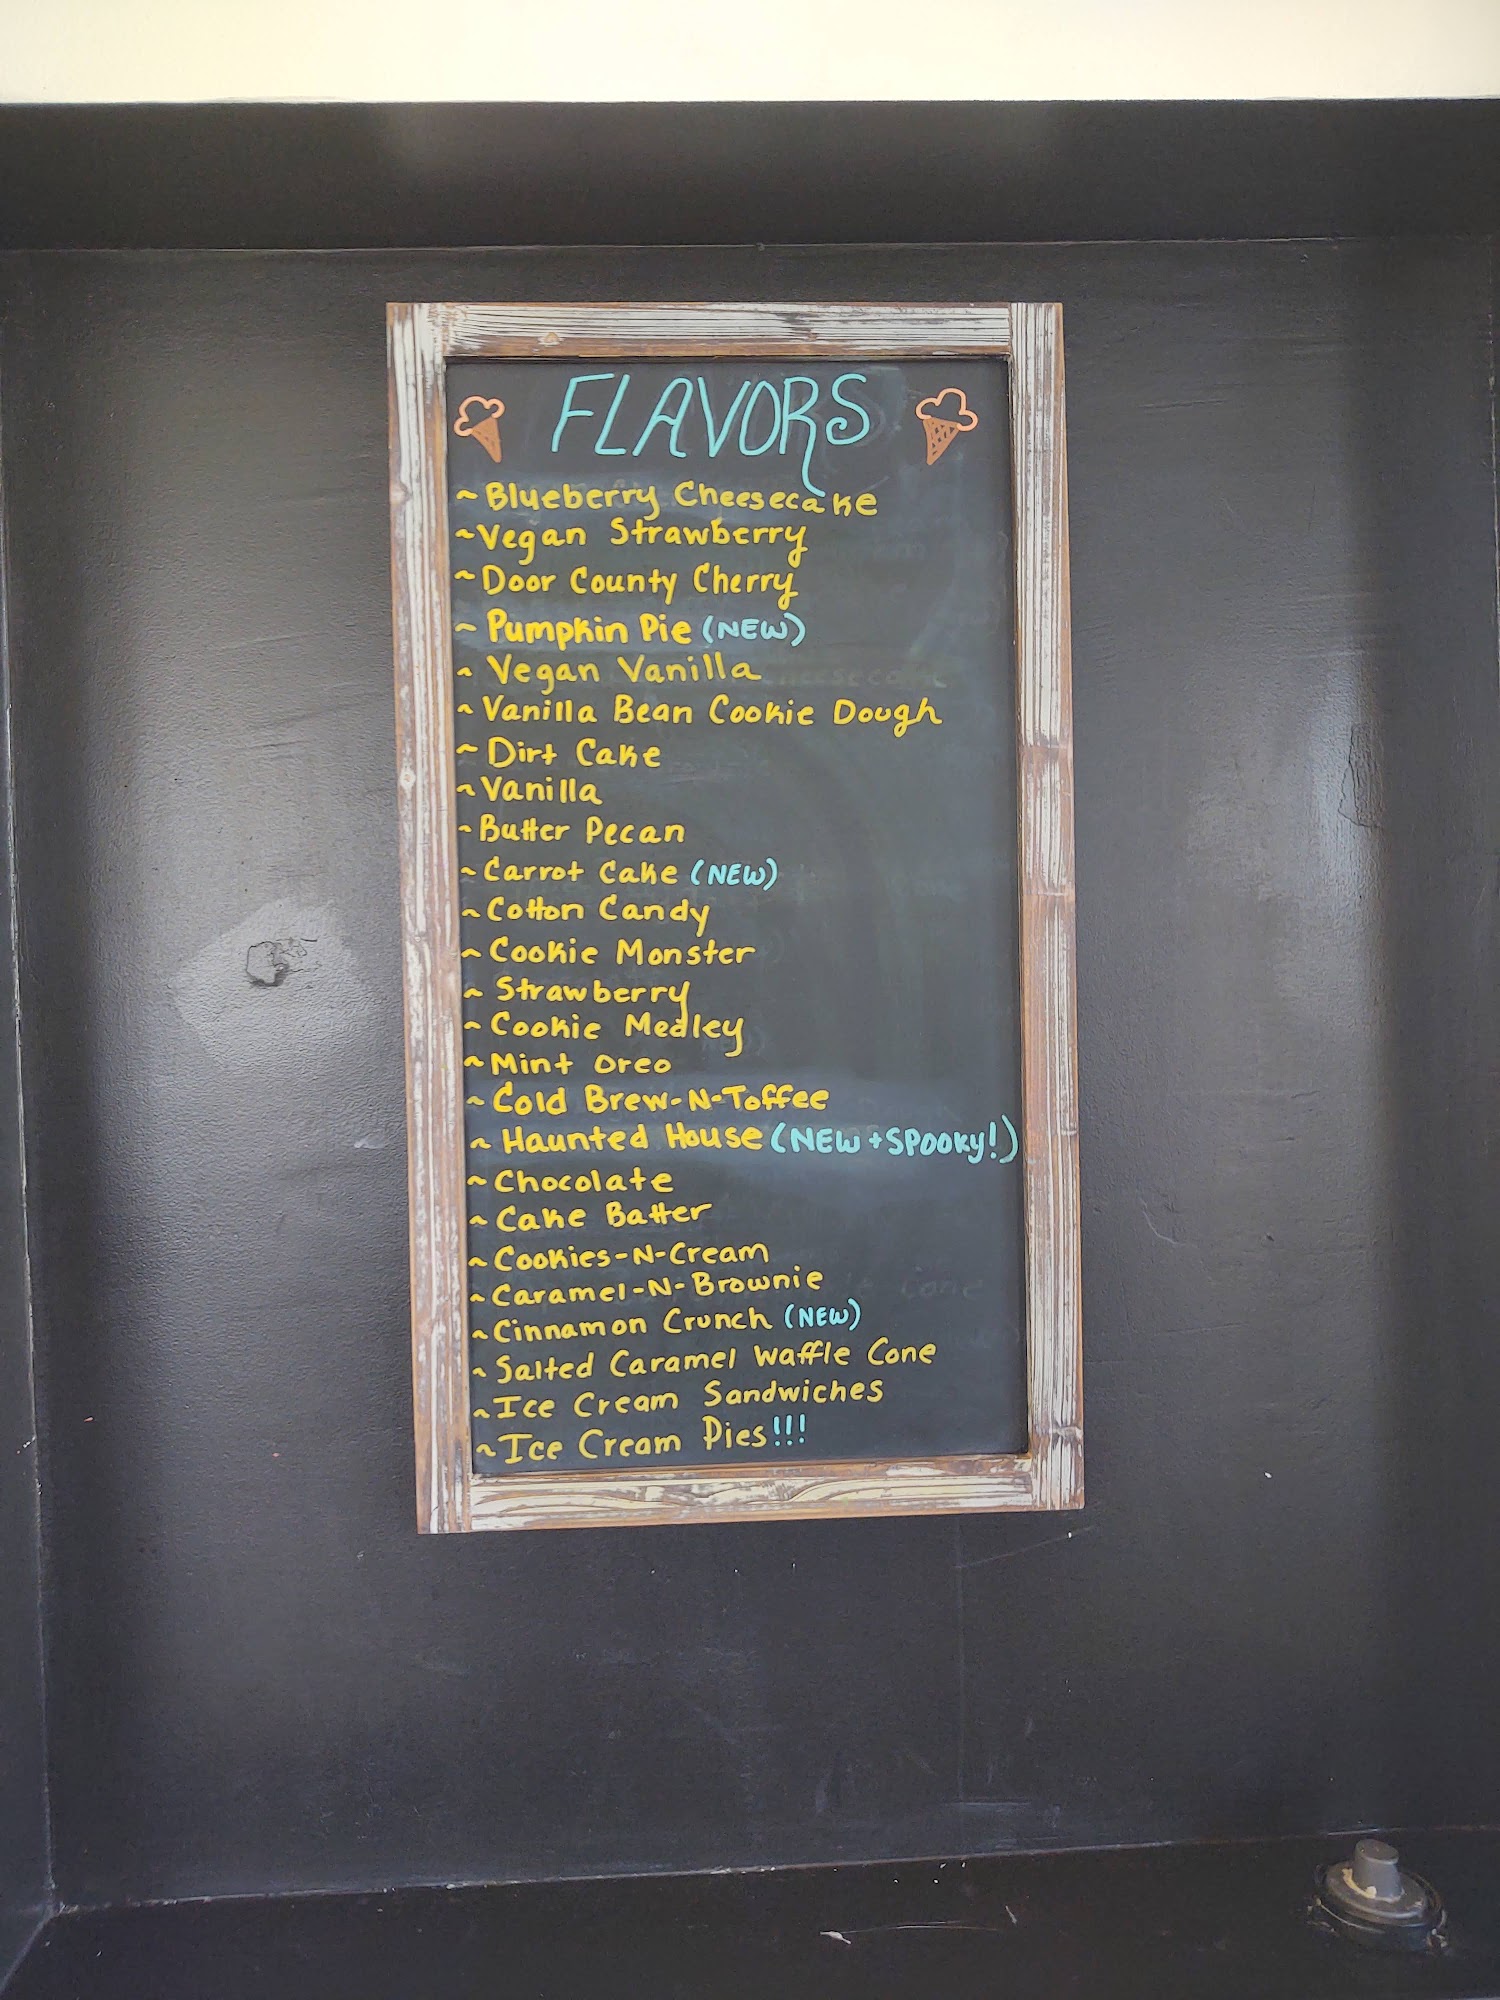 FLAVORS
~Blueberry Cheesecake
~Vegan Strawberry
~Door County Cherry
~Pumpkin Pie (NEW)
~Vegan Vanilla
~Vanilla Bean Cookie Dough
~Dirt Cake
~Vanilla
~Butter Pecan
~Carrot Cake (NEW)
~Cotton Candy
~Cookie Monster
~Strawberry
~Cookie Medley
~Mint Oreo
~Cold Brew-N-Toffee
~Haunted House (NEW + SPOOKY!)
~Chocolate
~Cake Batter
~Cookies-N-Cream
~Caramel-N-Brownie
~Cinnamon Crunch (NEW)
~Salted Caramel Waffle Cone
~Ice Cream Sandwiches
~Ice Cream Pies!!!